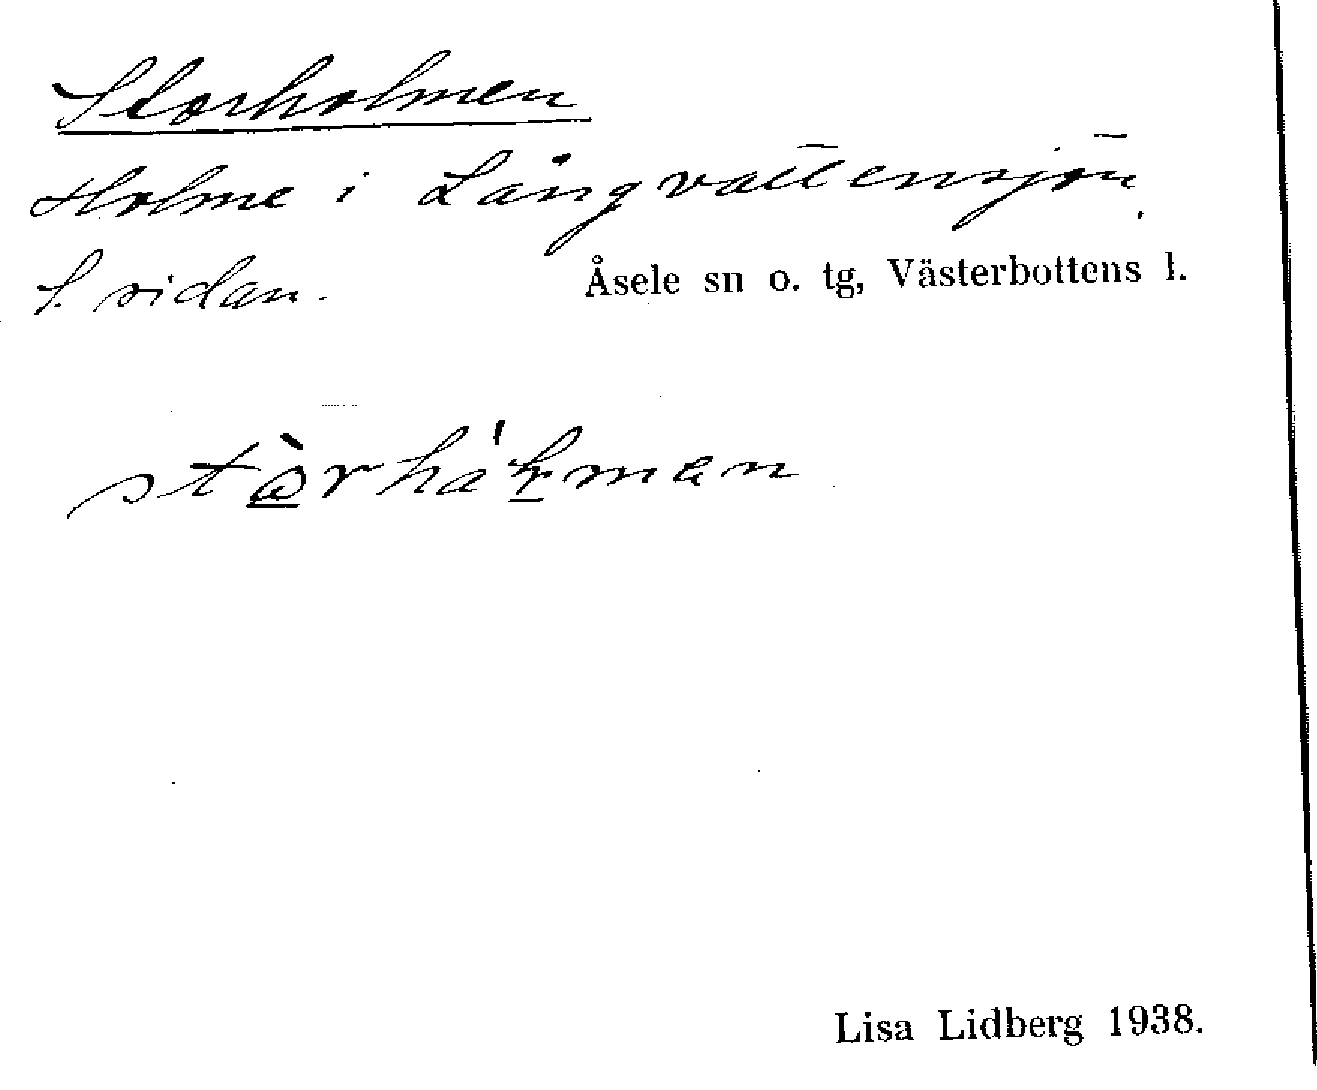 Storholmen
Holme i Långvattensjön,
S. sidan.
Åsele sn o. tg, Västerbottens l.
Lisa Lidberg 1938.